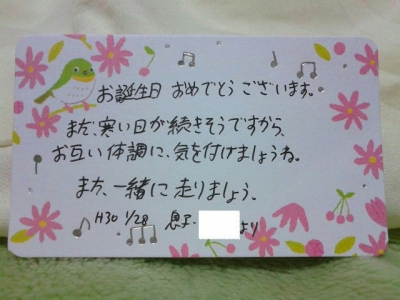 お誕生日 おめでとう ございます。
まだ、寒い日が続きそうですから、
お互い体調に、気を付けましょうね。
また、一緒に走りましょう。
H30 1/28 息子. より